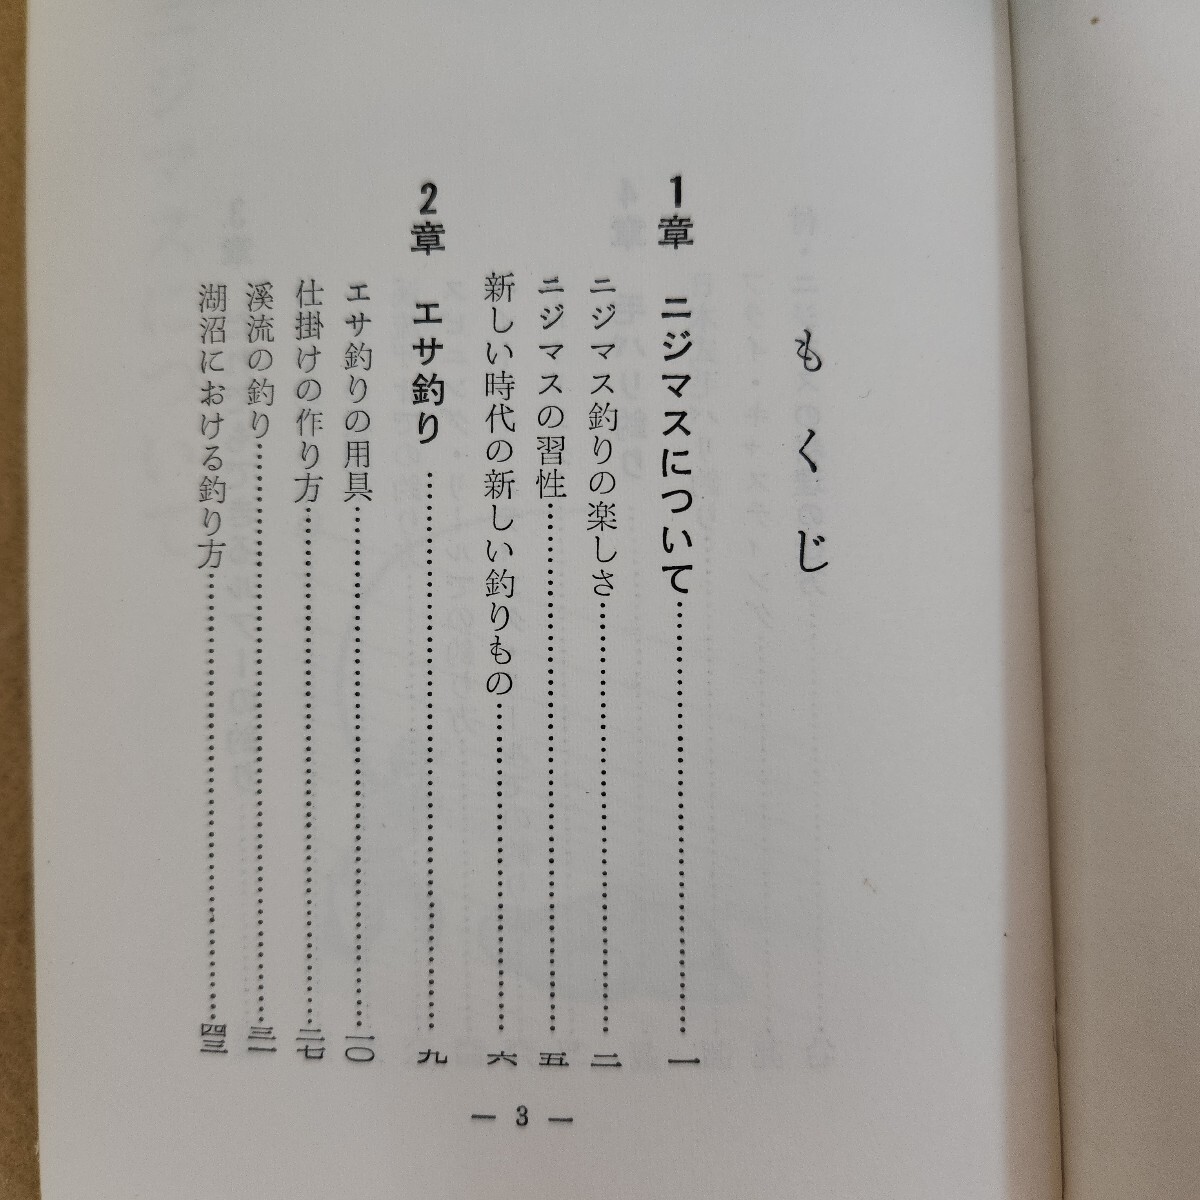 もくじ
1章 ニジマスについて……………………一
ニジマス釣りの楽しさ……………………二
ニジマスの習性……………………五
新しい時代の新しい釣りもの……………………六
2章 エサ釣り……………………九
エサ釣りの用具……………………一〇
仕掛けの作り方……………………二七
溪流の釣り……………………三一
湖沼における釣り方……………………四三
— 3 —